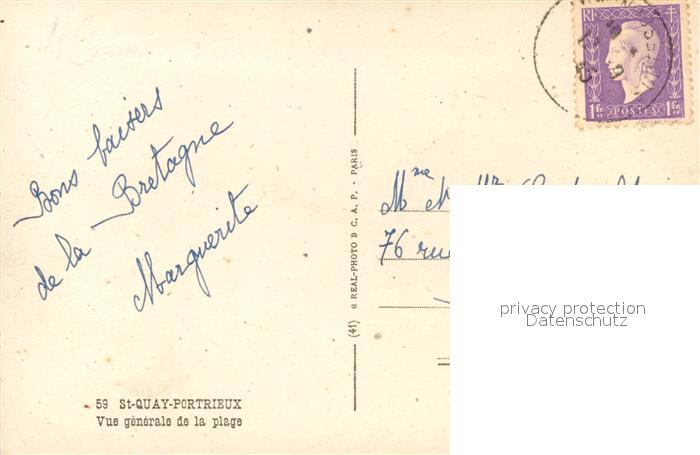 Bons baisers
de la Bretagne
Marguerite
59 St-QUAY-PORTRIEUX
Vue générale de la plage
(41) « REAL-PHOTO » C. A. P. - PARIS
RF
1fr POSTES 1fr
Mme
76 rue
privacy protection
Datenschutz